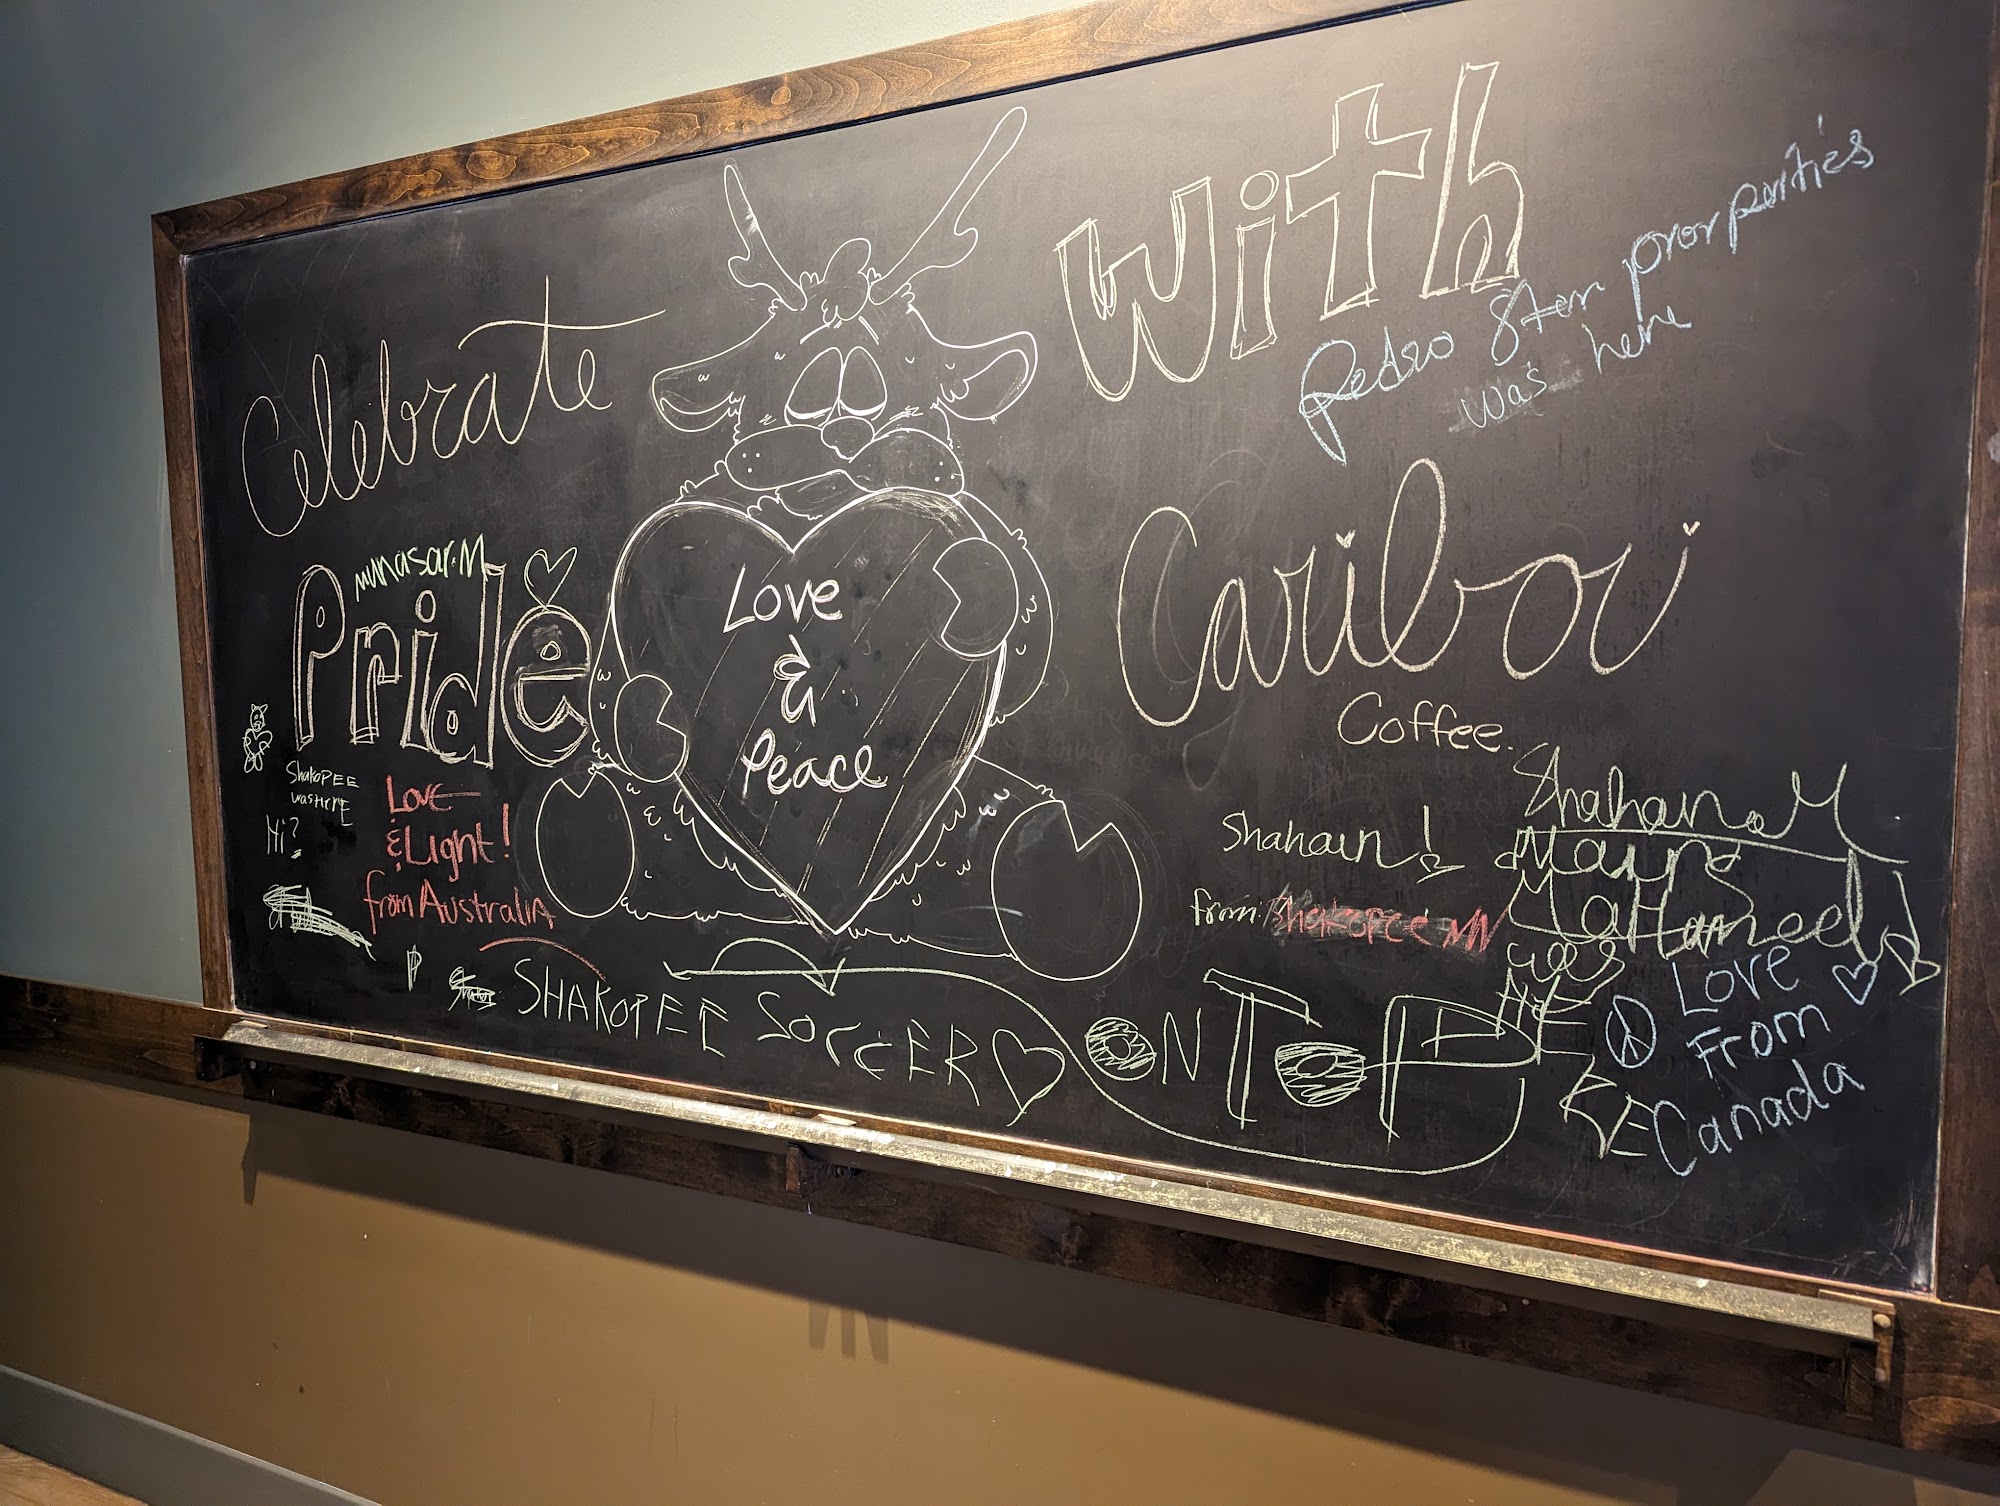 Celebrate
Pride
with
Caribou
Coffee.
Love
&
Peace
Pedro
was here
Shakopee
was here
Hi?
Love
& Light!
from Australia
Shahain!
from Shakopee MN
SHAKOPEE SOCCER ON TOP
Love
From
Canada